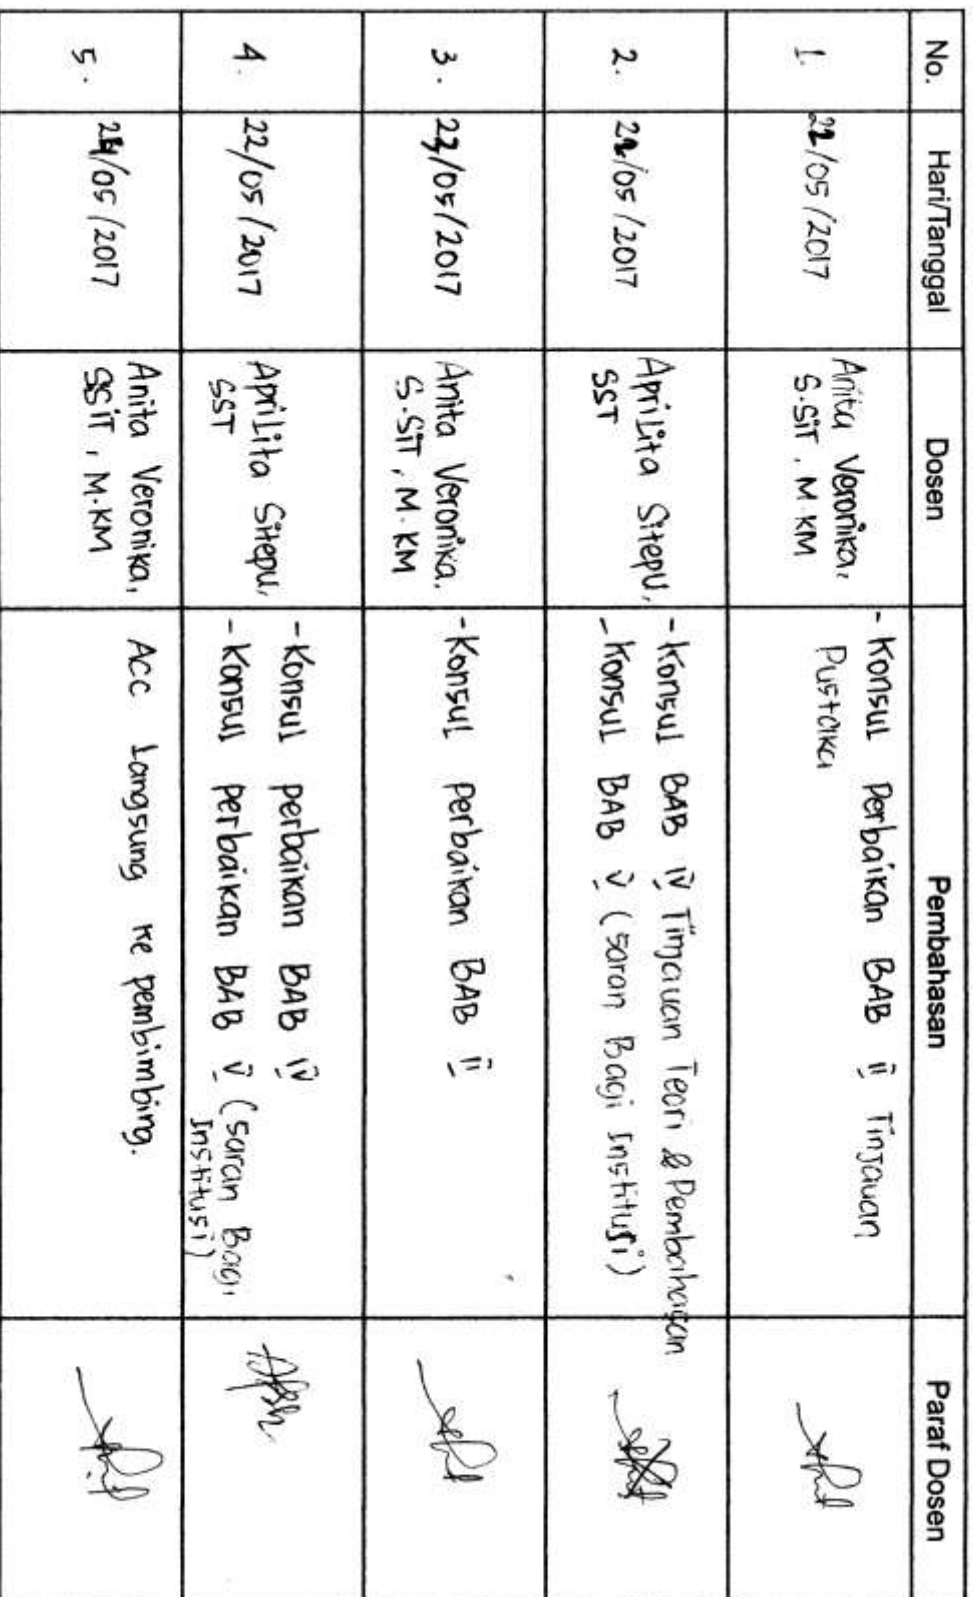 No. Hari/Tanggal Dosen Pembahasan Paraf Dosen
1. 22/05/2017 Anita Veronika, - Konsul Perbaikan BAB II Tinjauan
S.SiT, M.KM Pustaka
2. /05/2017 Aprilita Sitepu, - Konsul BAB IV Tinjauan Teori & Pembahasan
SST - Konsul BAB V (saran Bagi Institusi)
3. 23/05/2017 Anita Veronika, - Konsul Perbaikan BAB II
S.SiT, M.KM
4. 22/05/2017 Aprilita Sitepu, - Konsul perbaikan BAB IV
SST - Konsul perbaikan BAB V (saran Bagi
Institusi)
5. /05/2017 Anita Veronika, Acc Langsung ke pembimbing.
SSiT, M.KM